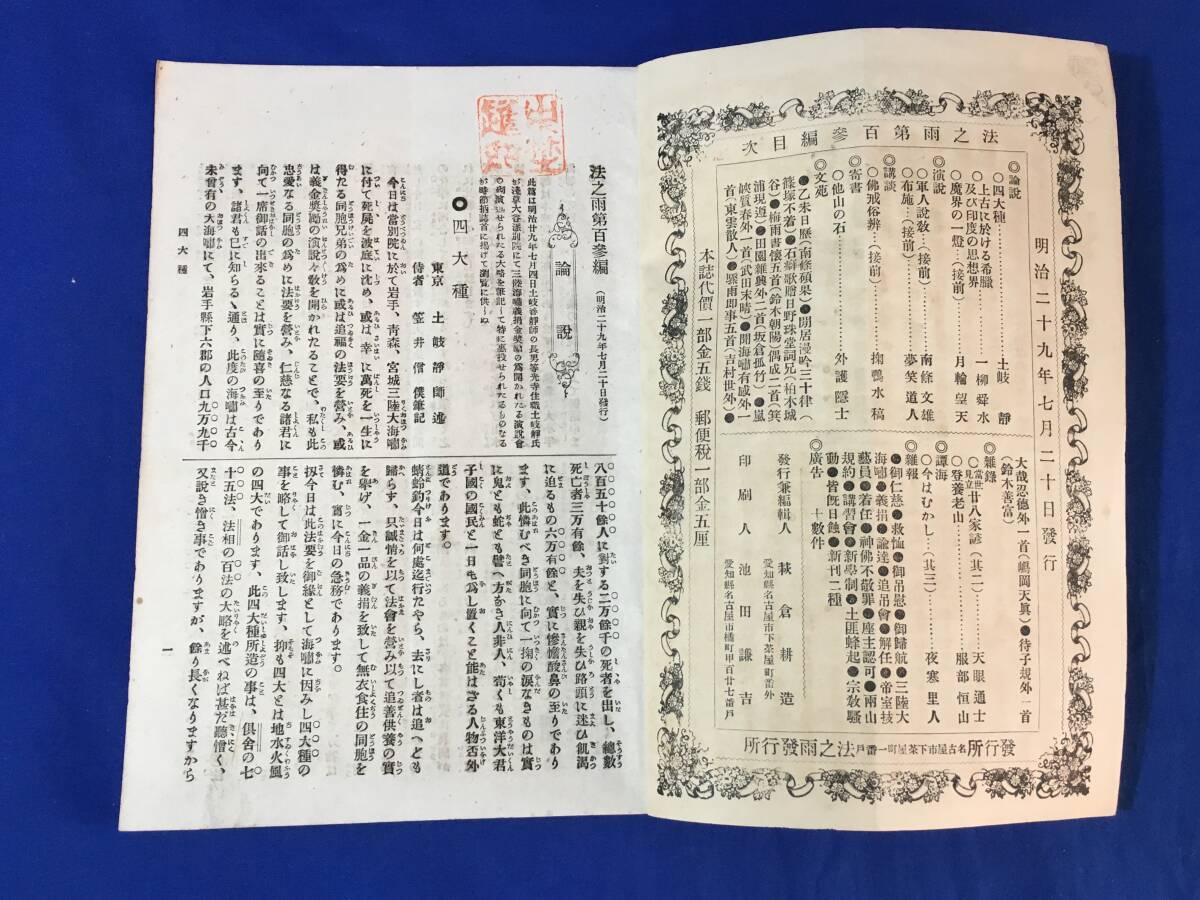 法之雨第百參編目次
明治二十九年七月二十日發行
◎論說
○四大種………………土岐靜
○上古に於ける希臘及び印度の思想界………一柳舜水
○魔界の一燈…(接前)………月輪望天
◎演說
○軍人說敎…(接前)………南條文雄
○布施…(接前)………夢笑道人
◎講談
○佛戒俗辨…(接前)………掬鸚水稿
◎寄書
○他山の石………………外護隱士
◎文苑
●乙未日歷(南條碩果)●閉居漫吟三十律(
篠塚不着)●石癖歌贈日野珠堂詞兄(柏木城
谷)●梅雨書懷五首(鈴木朝陽)偶成二首(箕
浦現道)●田園雜興外二首(坂倉孤竹)●嵐
峽質春外一首(武田末晴)●聞海嘯有感外一
首(東雲散人)●驟雨即事五首(吉村世外)●
大哉忍德外一首(嶋岡天眞)●待子規外一首
(鈴木善富)
◎雜錄
○當世見立廿八家諺(其二)………天眼通士
○登養老山………………服部恒山
◎譚海
○今はむかし…(其三)………夜寒里人
◎雜報
●御仁慈●救恤●御弔慰●御歸航●三陸大
海嘯●義捐●諭達●追吊會●解任●帝室技
藝員●若任●神佛不敬罪●座主認可●兩山
規約●講習會●新學制●土匪蜂起●宗敎騷
動●皆既日蝕●新刊二種
◎廣告 十數件
本誌代價一部金五錢 郵便税一部金五厘
發行兼編輯人 萩倉耕造
愛知縣名古屋市下茶屋町一番外
印刷人 池田謙吉
愛知縣名古屋市橘町甲百廿七番戶
發行所 名古屋市下茶屋町一番戶 法之雨發行所
法之雨第百參編 (明治二十九年七月二十日發行)
論說
此篇は明治廿九年七月四日土岐善靜師の長男等光寺住職土岐靜氏
が淺草大谷派別院にて三陸海嘯義捐金奬勵の爲開かれたる演說會
の砌演ぜられたる大略を筆記して特に惠投せられたるものなる
が時節柄誌首に揭げて瀏覽に供しぬ
○四大種
東京 土岐靜師述
侍者 笠井信僕筆記
今日は當別院に於て岩手、靑森、宮城三陸大海嘯
に付て死屍を波底に沈め、或は幸に萬死を一生に
得たる同胞兄弟の爲めに或は追福の法要を營み、或
は義金奬勵の演說々敎を開かれたることで、私も此
忠愛なる同胞の爲めに法要を營み、仁慈なる諸君に
向て一席御話の出來ることは實に隨喜の至りであり
ます、諸君も已に知らるゝ通り、此度の海嘯は古今
未曾有の大海嘯にて、岩手縣下六郡の人口九万九千
八百五十餘人に對する二万餘千の死者を出し、總數
死亡者三万有餘、夫を失ひ親を失ひ路頭に迷ひ飢渴
に迫るもの六万有餘と、實に慘憺酸鼻の至りであり
ます、此憐むべき同胞に向て一掬の淚なきものは實
に鬼とも蛇とも譬へ方なき人非人、苟くも東洋大君
子國の國民と一日も爲し置くこと能はざる人物否外
道であります。
蜻蛉釣今日は何處迄行たやら、去にし者は追へども
歸らず、只誠情を以て法會を營み以て追善供養の實
を擧げ、一金一品の義捐を致して無衣食住の同胞を
憐む、寔に今日の急務であります。
扨今日は此法要を御緣として海嘯に因みし四大種の
事を略して御話し致します、抑も四大とは地水火風
の四大であります、此四大種所造の事は、俱舍の七
十五法、法相の百法の大略を述べねば甚だ聽惜く、
又說き惜き事でありますが、餘り長くなりますから
四大種
一